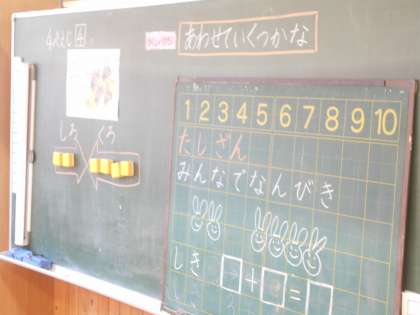 あわせていくつかな
しろ くろ
1 2 3 4 5 6 7 8 9 10
たしざん
みんなでなんびき
しき □+□=□